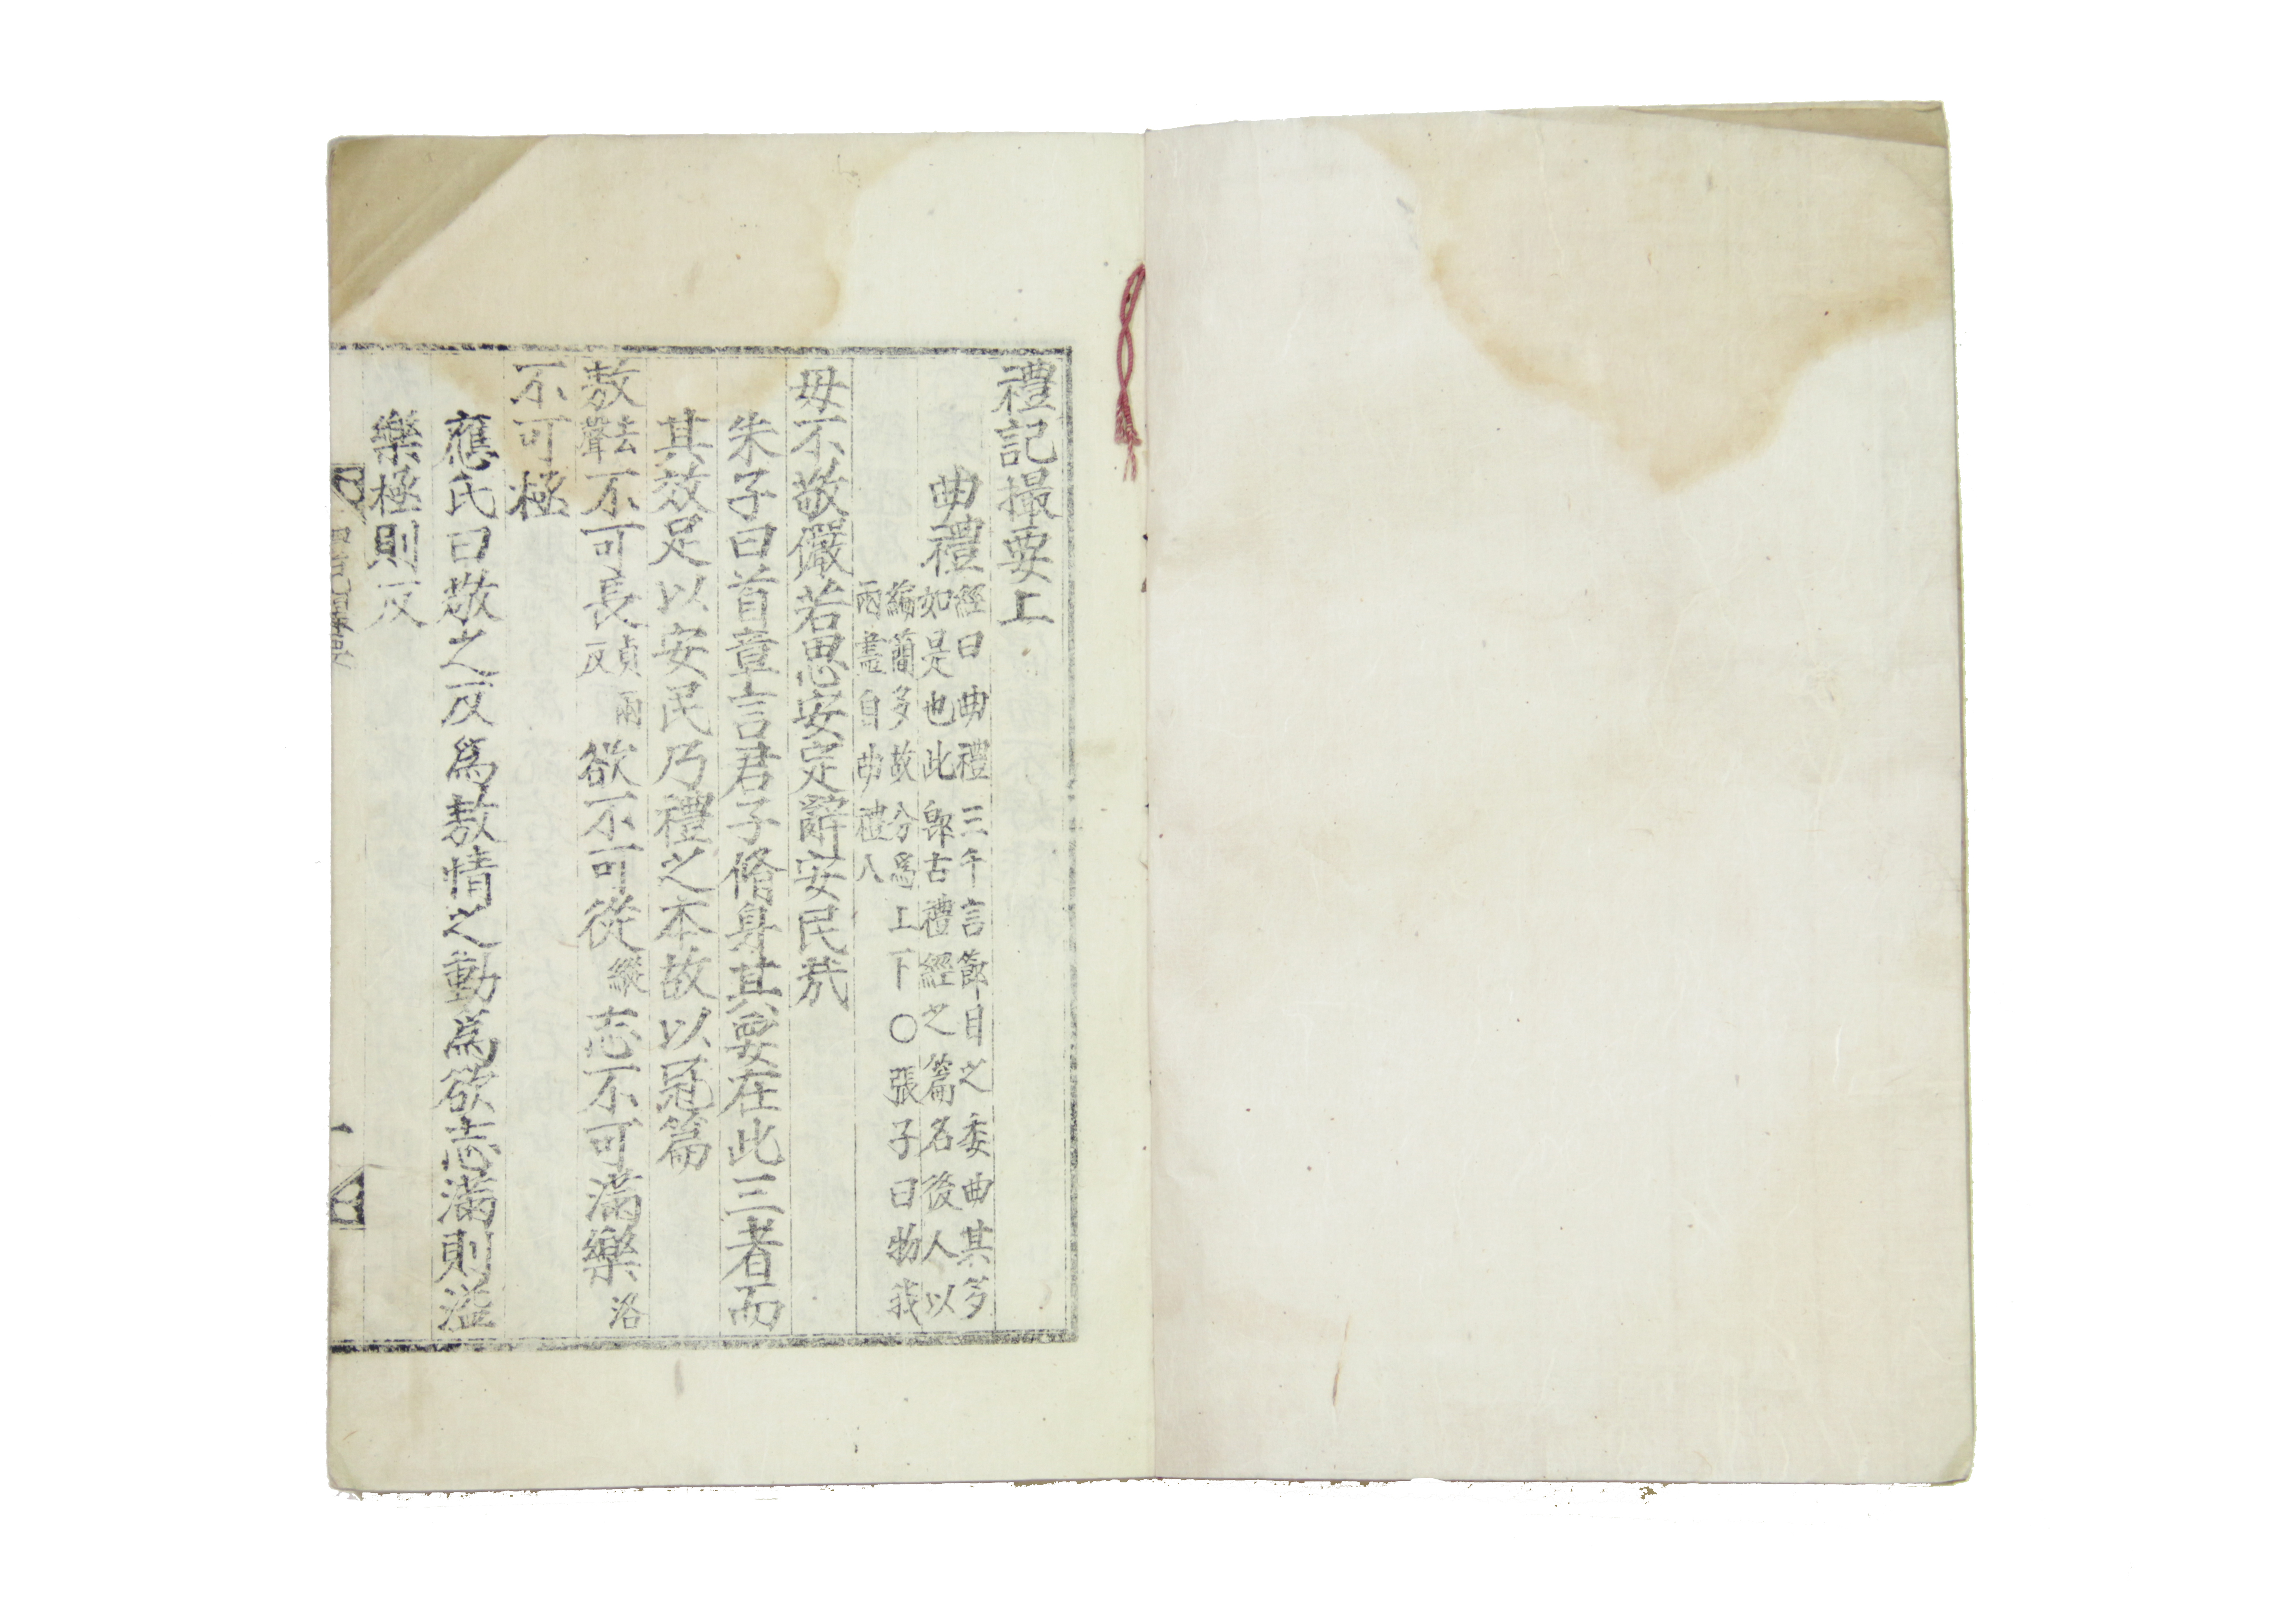 禮記撮要上
曲禮 經曰曲禮三千言節目之委曲其多
如是也此卽古禮經之篇名後人以
編簡多故分爲上下○張子曰物我
兩盡自曲禮入
毋不敬儼若思安定辭安民哉
朱子曰首章言君子脩身其要在此三者而
其效足以安民乃禮之本故以冠篇
敖去聲不可長貞兩反欲不可從縱志不可滿樂洛
不可極
應氏曰敬之反爲敖情之動爲欲志滿則溢
樂極則反
一